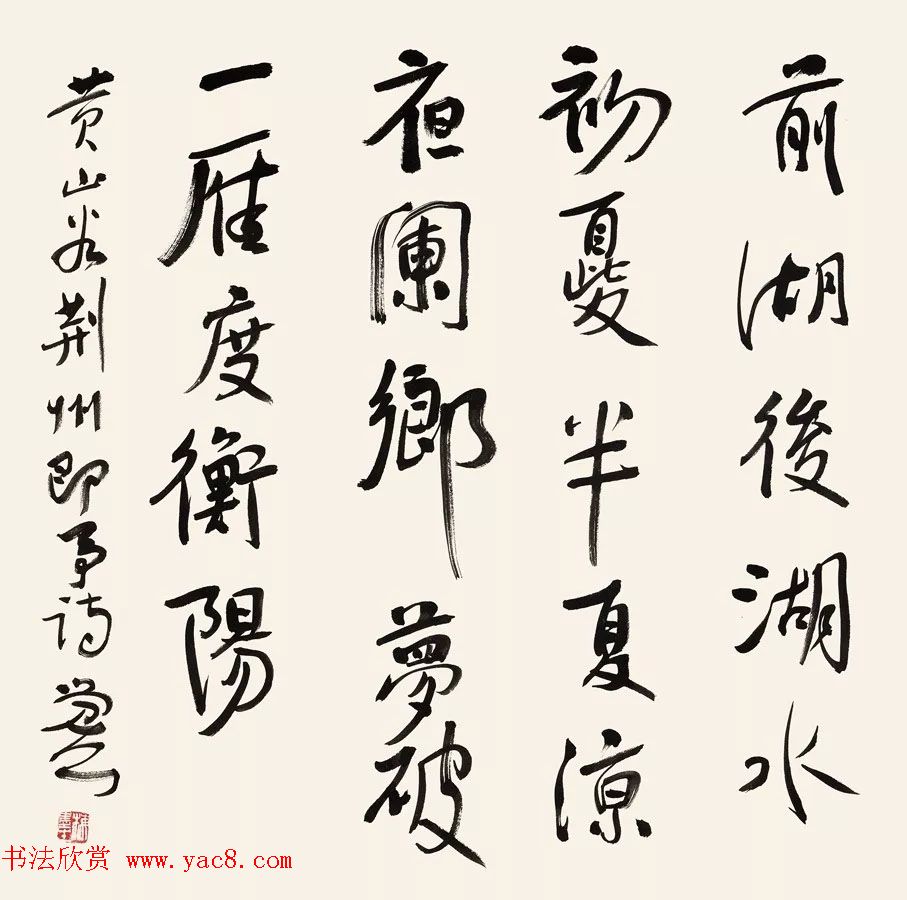 前湖後湖水
初夏半夏涼
夜闌鄉夢破
一雁度衡陽
黄山谷荆州即事诗
书法欣赏 www.yac8.com